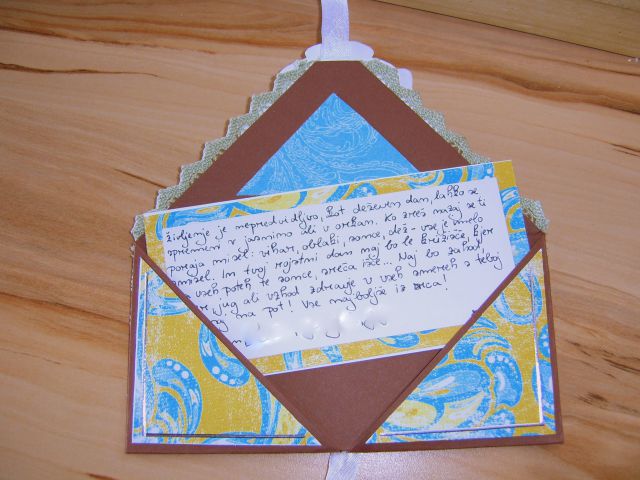 Življenje je nepredvidljivo, kot deževen dan, lahko se
spremeni v jasnino ali v orkan. Ko zreš nazaj se ti
poraja misel: vihar, oblaki, sonce, dež - vse je imelo
smisel. Im tvoj rojstni dan naj bo le križišče, kjer
vseh poteh te sonce, sreča išče... Naj bo zahod
jug ali vzhod zdravje v vseh smereh s teboj
na pot! Vse najboljše iz srca!